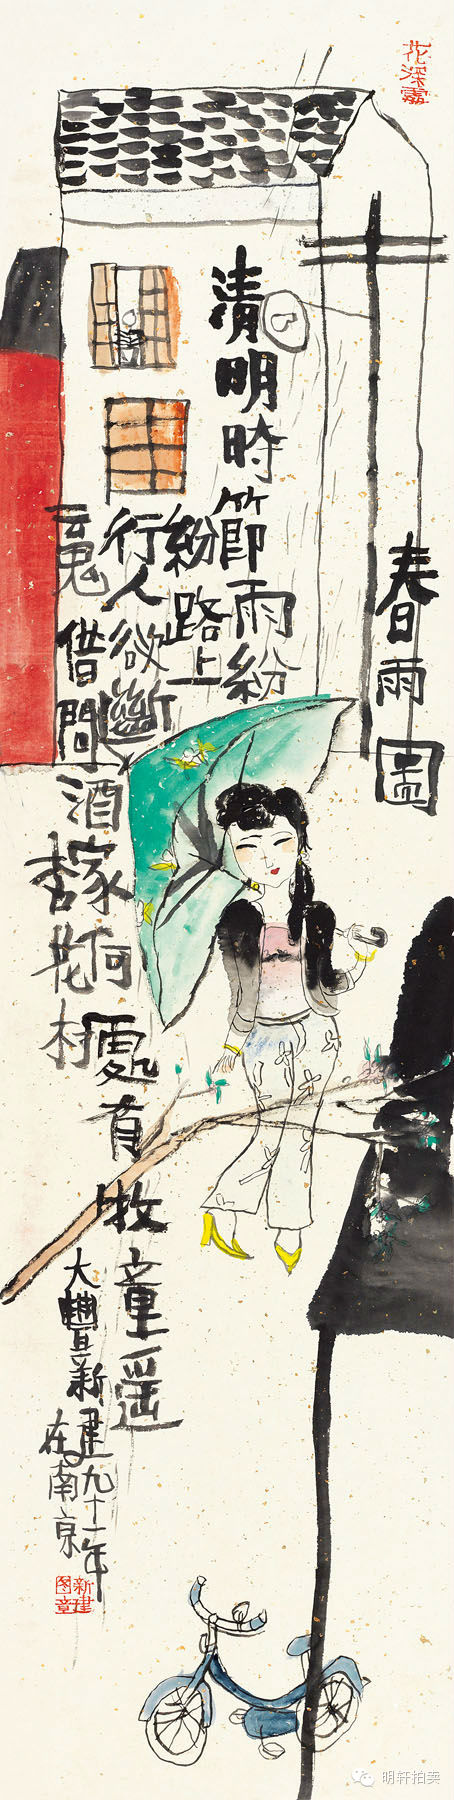 花深處
春雨圖
清明時節雨紛
紛路上
行人欲斷
魂借問
酒家何處有牧童遥
杏花村
大豐新建九十一年
在南京
新建
图章
明轩拍卖